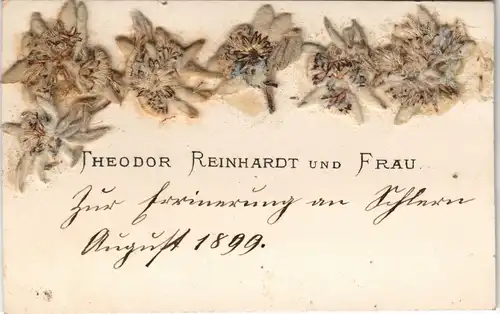 THEODOR REINHARDT UND FRAU.
Zur Errinerung an Schlern
August 1899.